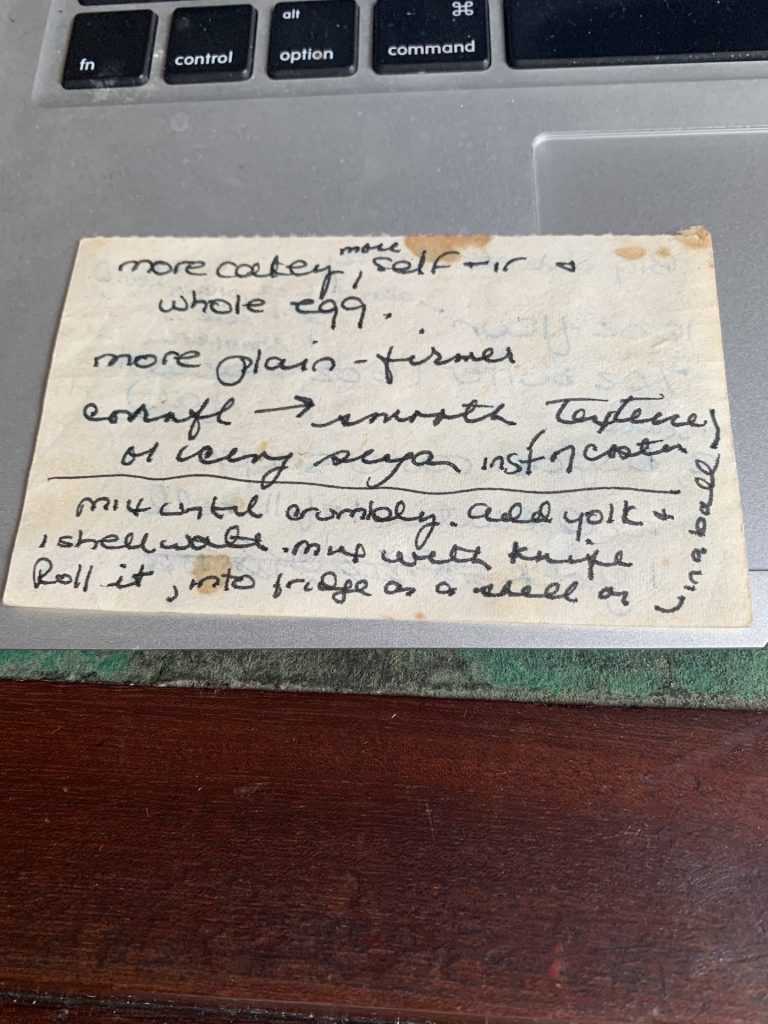 alt ⌘
fn control option command
more cakey, more self-ir +
whole egg.
more plain - firmer
cornfl → smooth texture
or icing sugar inst/ of castor
mix until crumbly. add yolk +
1 shell wate. mix with knife
Roll it, into fridge as a shell or
in a ball